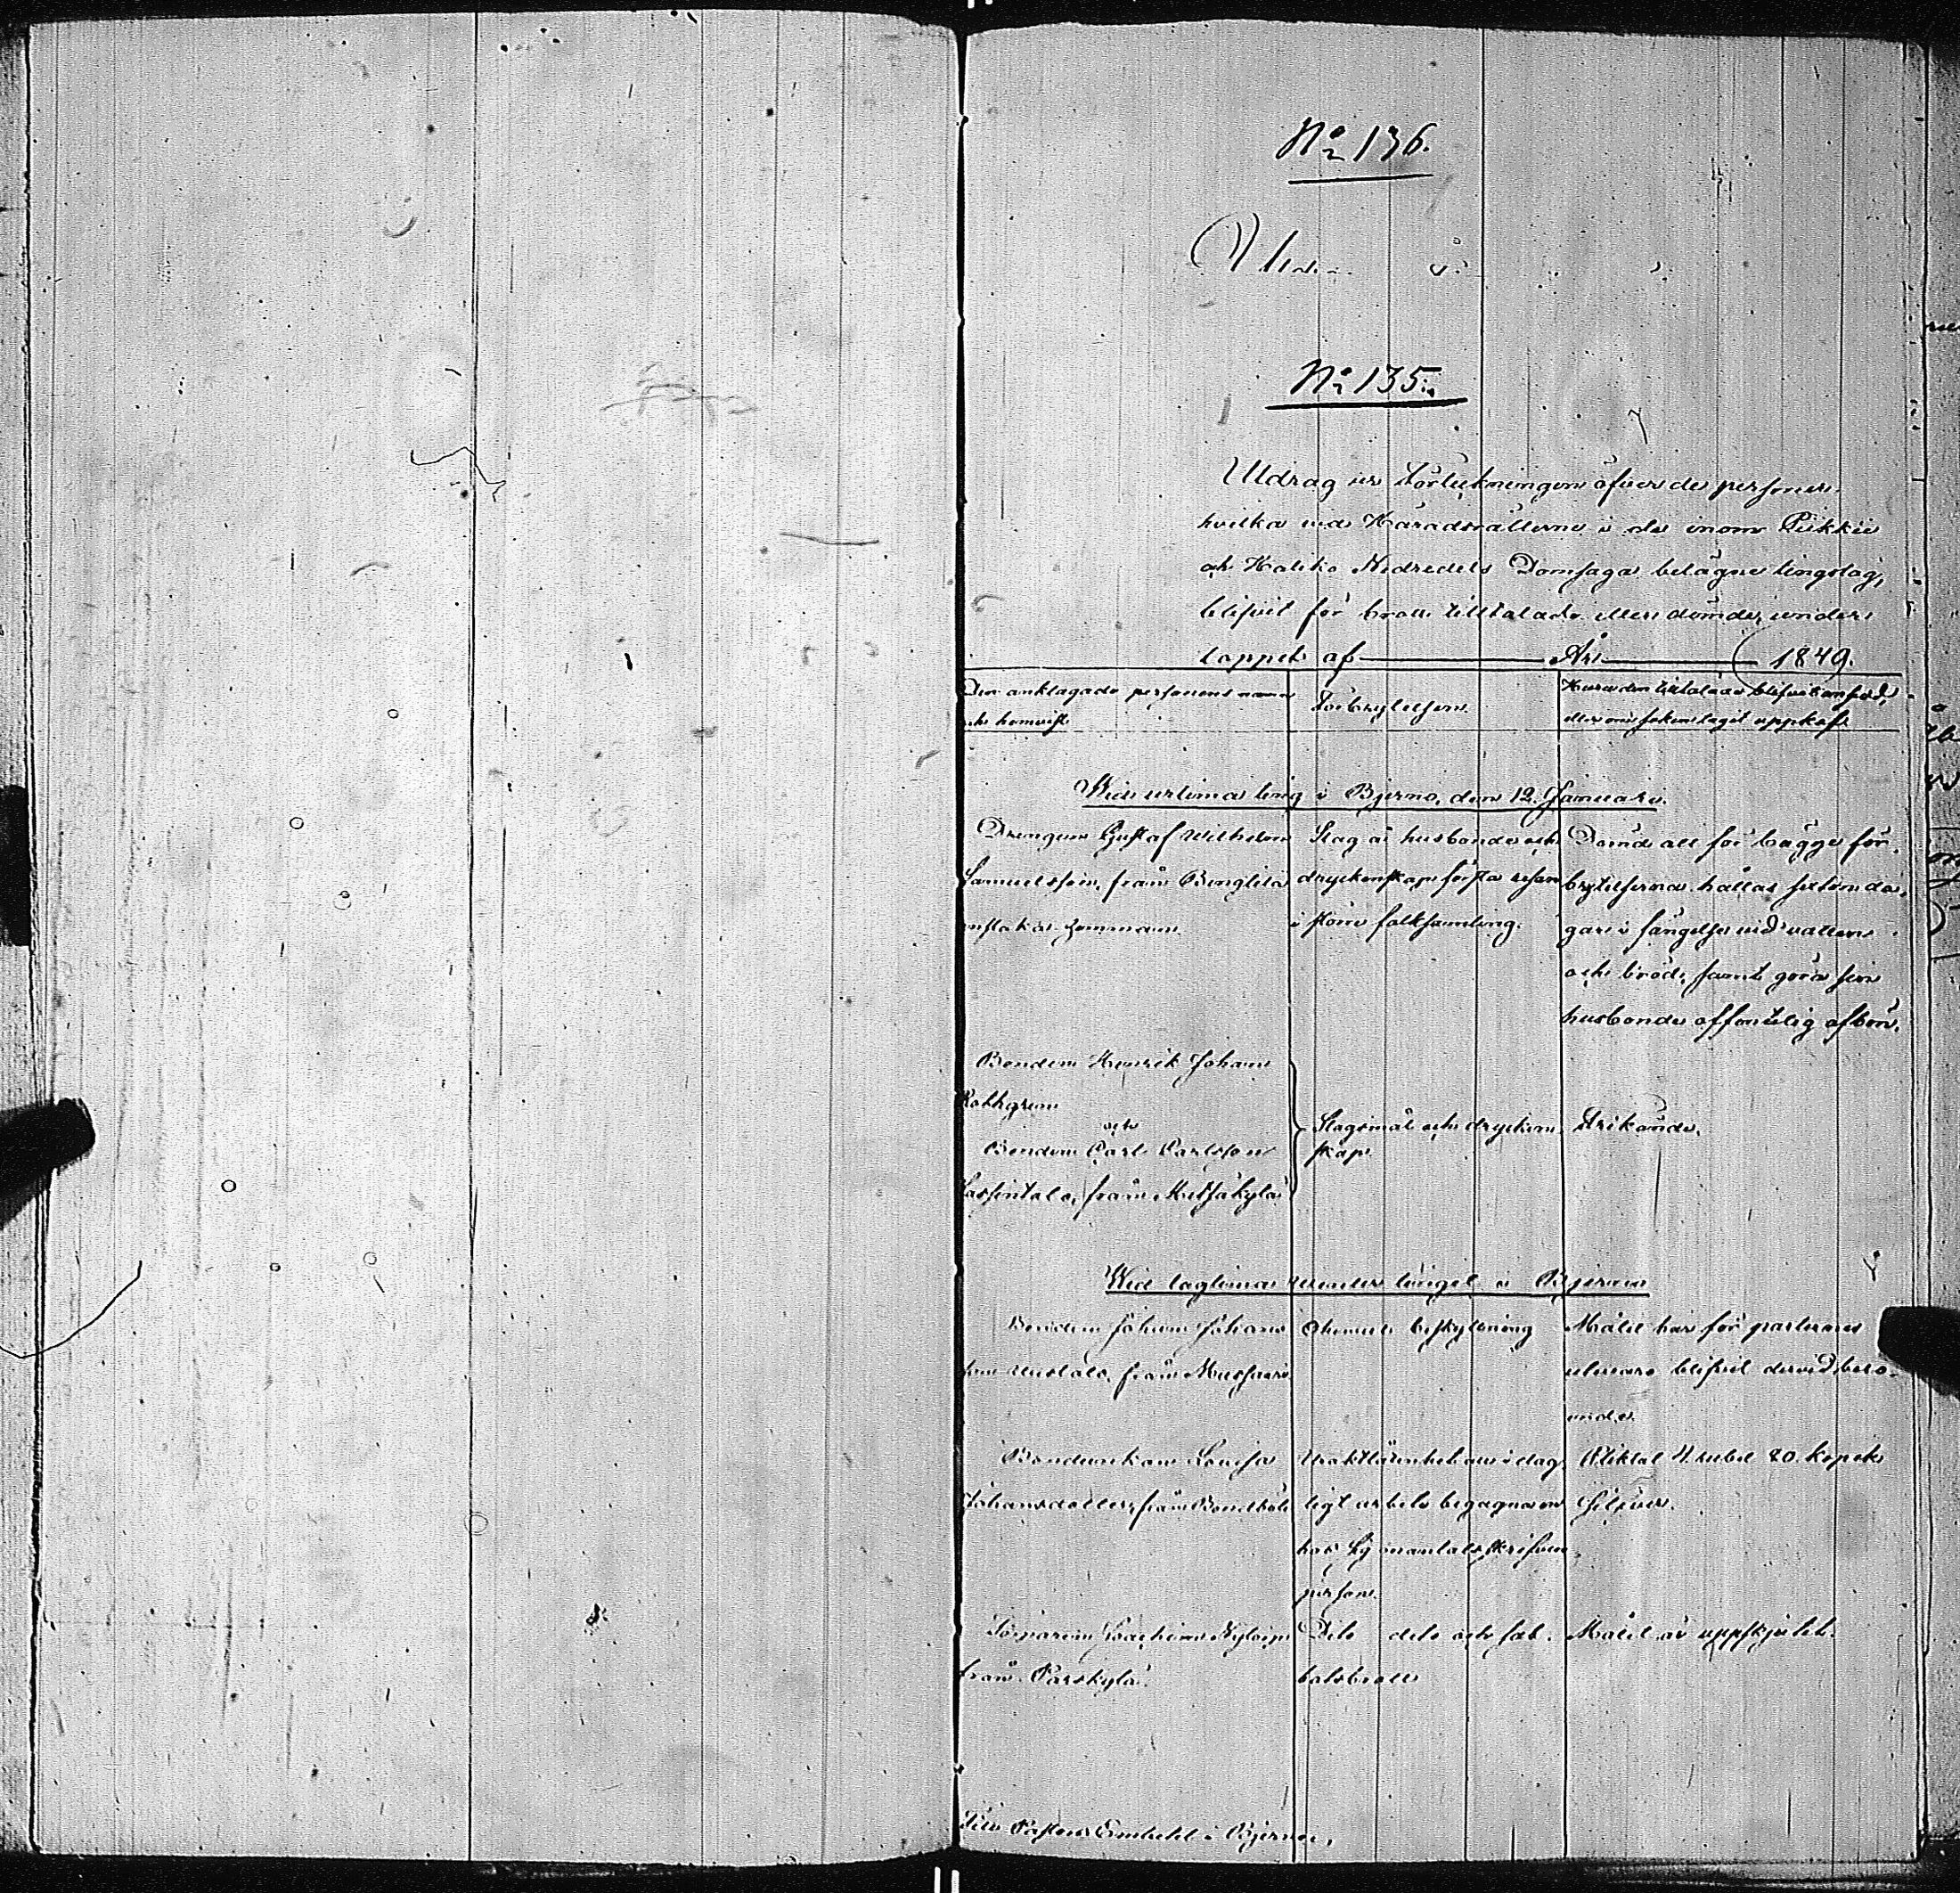 No 136.
No 135.
Utdrag ur Förteckningen öfver de personer,
hvilka vid Häradsrätterne i de inom Piikkie
och Haliko Nedredels Domsaga belägne tingslag,
blifvit för brott tilltalade eller dömde, under
loppet af År 1849.
Den anklagade personens namn
och hemvist.
Förbrytelsen.
Huru den tilltalade blifvit ansedd,
eller om saken tagit uppskof.
Wid urtima ting i Bjerno, den 12 Januari.
Drengen Gustaf Wilhelm
Samuelsson, från
hemman.
Slag å husbonde och
dryckenskap första resan
i större folksamling.
Dömd att för bägge för-
brytelserna hållas
dagar i fängelse vid vatten
och bröd, samt göra sin
husbonde offentelig afbön.
Bonden Henrik Johan
och
Bonden Carl Carlsson
från Metsäkylä
Slagsmål och drycken-
skap.
Frikände.
Wid lagtima vinter tinget i Bjerno
Bonden Johan Johans-
son Uustalo, från
beskyllning
Målet har för parternes
uteevaro blifvit dervid bero-
ende.
Bondeenkan Lovisa
Johansdotter, från
i dag-
ligt arbete begagnad en
hos sig mantalsskrifven
person.
Pliktat 4 rubel 80 kopek
Silfver.
från Parskylä.
Dito dito och sab-
batsbrott
Målet är uppskjutet.
Till Pastors Embetet i Bjerno,